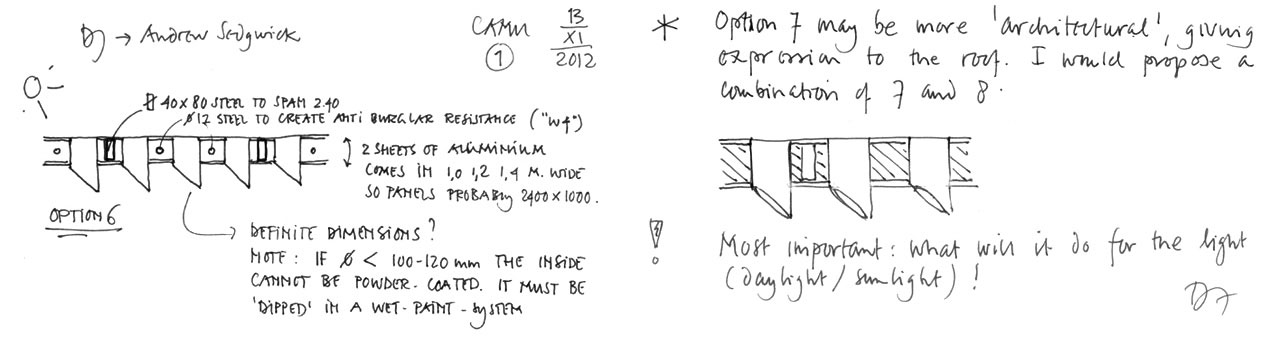 → Andrew Sedgwick
CAMM 13
① XI
2012
▯ 40 x 80 STEEL TO SPAM 2.40
ø12 STEEL TO CREATE ANTI BURGLAR RESISTANCE ("W4")
2 SHEETS OF ALUMINIUM
COMES IN 1,0 1,2 1,4 M. WIDE
SO PANELS PROBABLY 2400 x 1000.
OPTION 6
DEFINITE DIMENSIONS?
NOTE: IF ø < 100-120 mm THE INSIDE
CANNOT BE POWDER-COATED. IT MUST BE
'DIPPED' IN A WET-PAINT-SYSTEM
* Option 7 may be more 'architectural', giving
expression to the roof. I would propose a
combination of 7 and 8.
! Most important: what will it do for the light
(daylight / sunlight)!